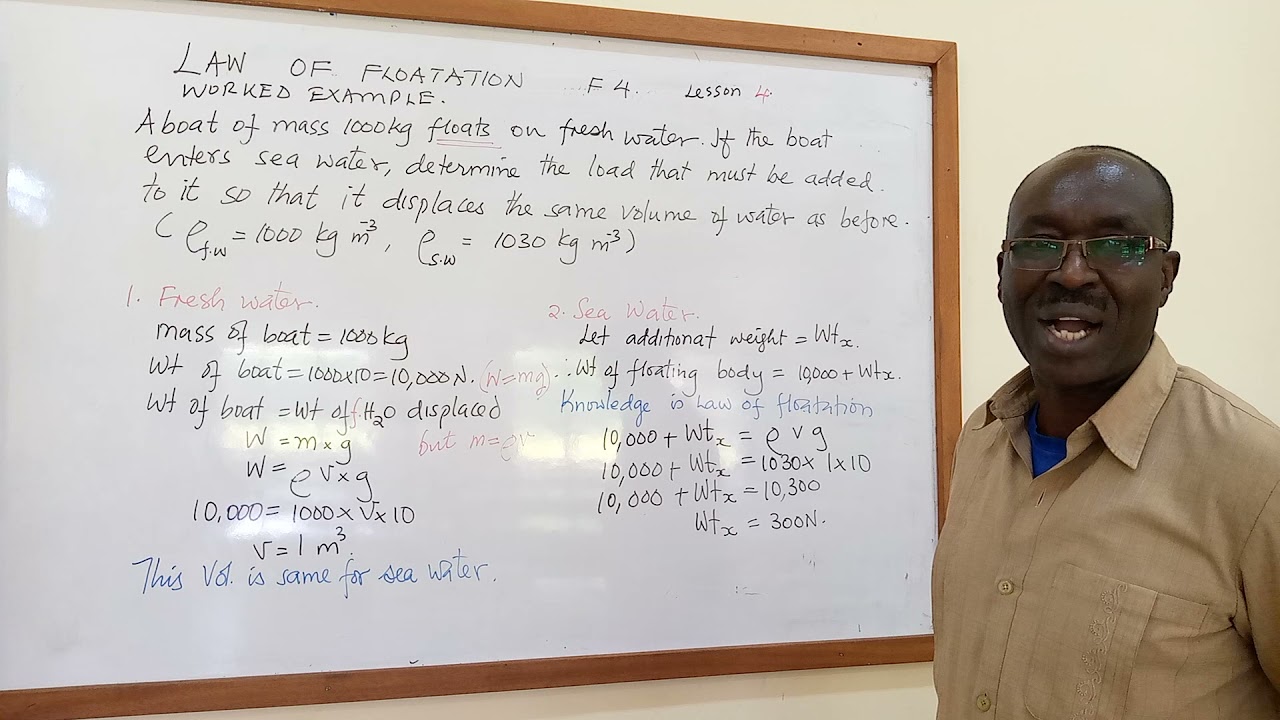 LAW OF FLOATATION F4. Lesson 4.
WORKED EXAMPLE.
A boat of mass 1000kg floats on fresh water. If the boat
enters sea water, determine the load that must be added
to it so that it displaces the same volume of water as before.
(ρf.w = 1000 kg m⁻³, ρs.w = 1030 kg m⁻³)
1. Fresh water.
mass of boat = 1000kg
Wt of boat = 1000x10 = 10,000N. (W=mg)
Wt of boat = Wt of f.H₂O displaced
W = m x g but m=ρv
W = ρ v x g
10,000 = 1000 x v x 10
v = 1 m³.
This Vol. is same for sea water.
2. Sea Water.
Let additional weight = Wtx.
∴ Wt of floating body = 10,000 + Wtx.
Knowledge is Law of floatation
10,000 + Wtx = ρ v g
10,000 + Wtx = 1030 x 1 x 10
10,000 + Wtx = 10,300
Wtx = 300N.